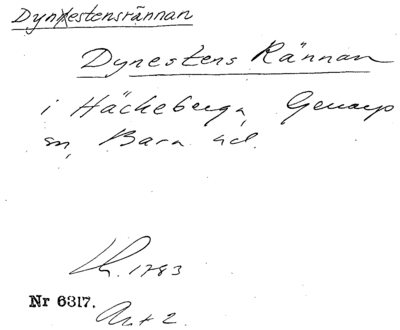 Dynestensrännan
Dynestens Rännan
i Häckeberga, Genarp
sn, Bara hd.
Lh. 1783
Nr 6317. Akt 2.